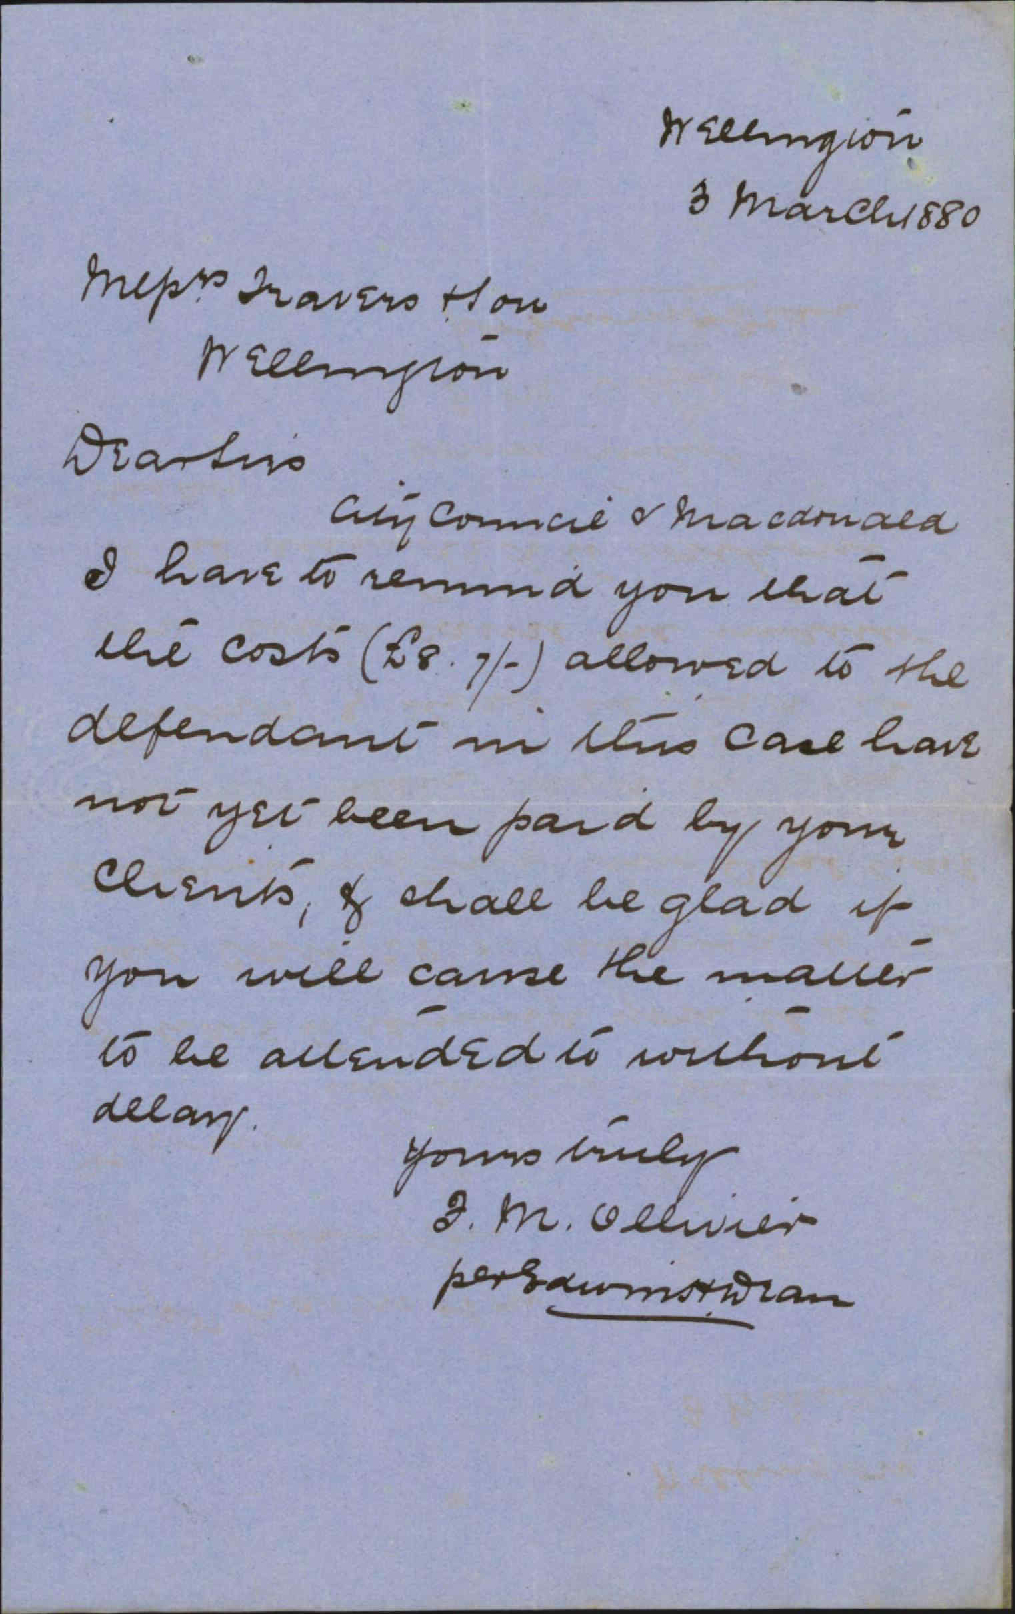 Wellington
3 March 1880
Messrs Travers & Son
Wellington
Dear Sirs
City Council v Macdonald
I have to remind you that
the costs (£8. 7/-) allowed to the
defendant in this case have
not yet been paid by your
clients, & shall be glad if
you will cause the matter
to be attended to without
delay.
Yours truly
F. M. Ollivier
per Edwin H. Dean